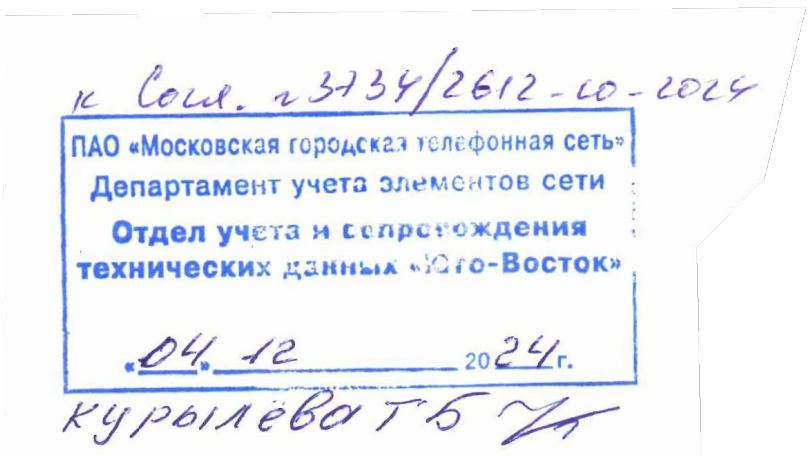 к Согл. г3734/2612-со-2024
ПАО «Московская городская телефонная сеть»
Департамент учета элементов сети
Отдел учета и сопровождения
технических данных «Юго-Восток»
«04» 12 2024 г.
Курылёва Т Б